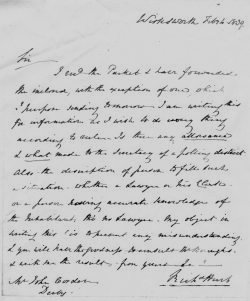 Wirksworth Feb 14 1839
Sir
I send the Packet & have forwarded
the inclosed with the exception of one which
I purpose sending tomorrow I am writing this
for information as I wish to do every thing
according to rule. Is there any allowance
& what made to the Secretary of a polling district
also the description of person to fill such
a situation. whether a Lawyer or his Clerk
or a person having accurate knowledge of
the Inhabitants, tho no Lawyer. My object in
writing this is to prevent any misunderstanding
& you will have the goodness to
& write me the result. from yours &c
Mr John
Derby